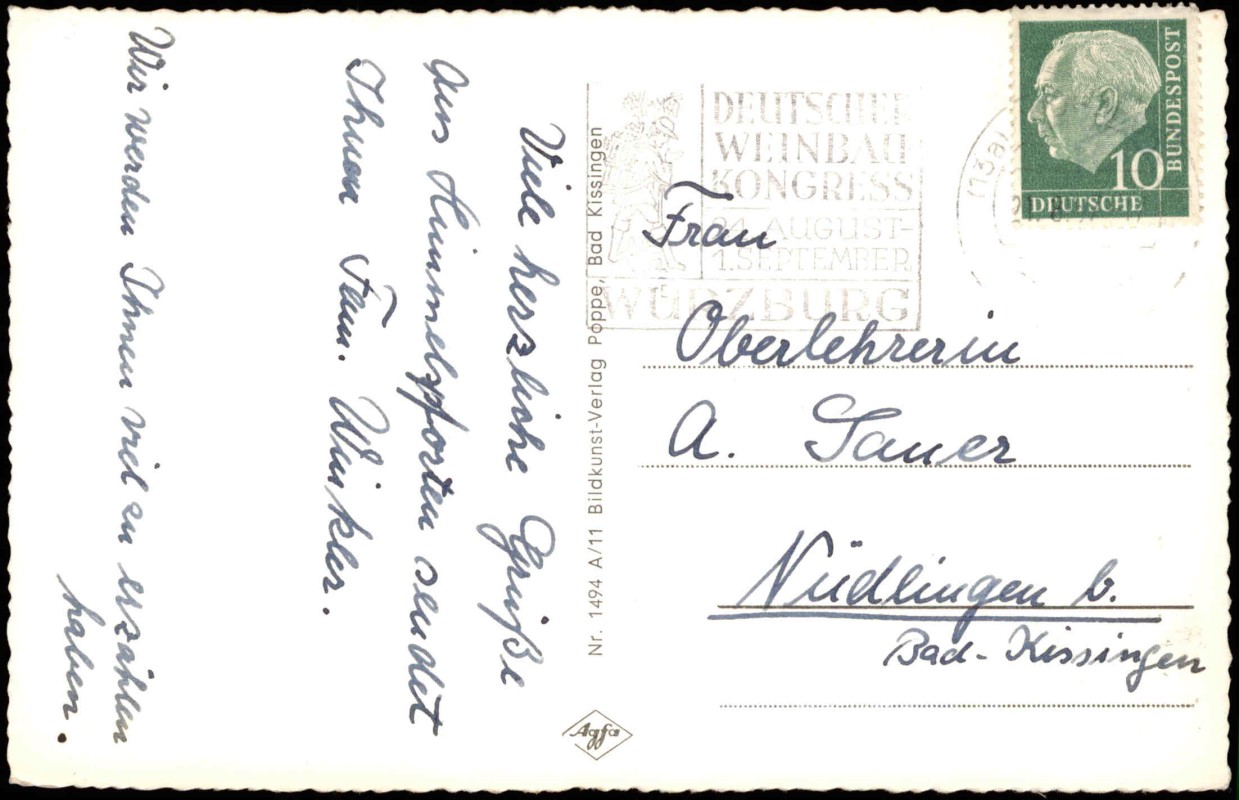 Viele herzliche Grüße
Aus Himmelspforten sendet
Ihnen Fam. Winkler.
Wir werden Ihnen viel zu erzählen
haben.
Nr. 1494 A/11 Bildkunst-Verlag Poppe, Bad Kissingen
Agfa
DEUTSCHER
WEINBAU
KONGRESS
24. AUGUST-
1. SEPTEMBER
WÜRZBURG
(13a)
10
DEUTSCHE
BUNDESPOST
Frau
Oberlehrerin
A. Sauer
Nüdlingen b.
Bad-Kissingen